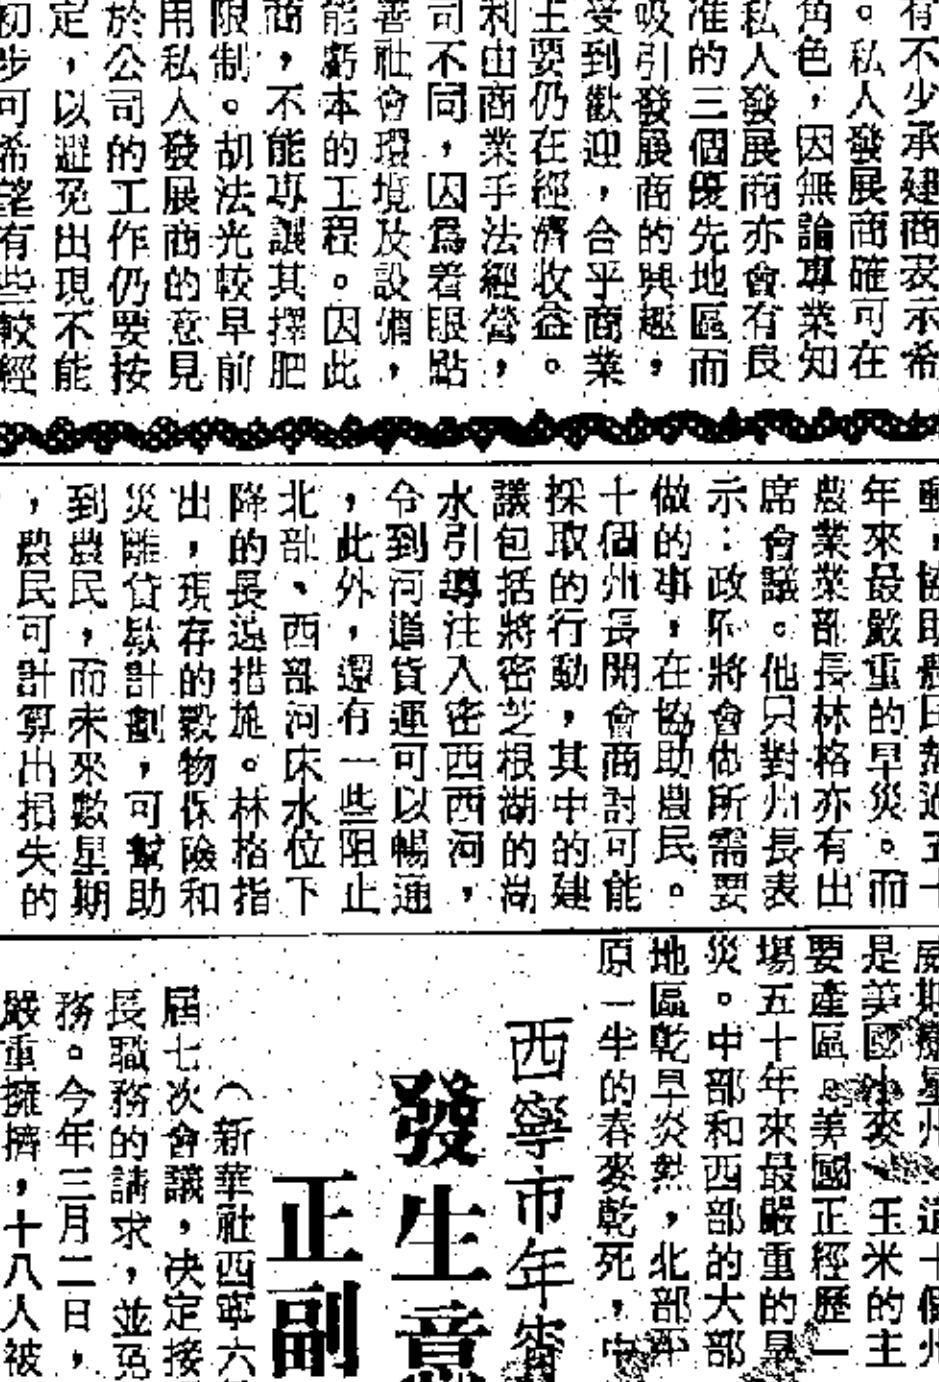 有不少承建商表示希
。私人發展商確可在
角色，因無論專業知
私人發展商亦會有良
准的三個優先地區而
吸引發展商的興趣，
受到歡迎，合乎商業
主要仍在經濟收益。
利由商業手法經營，
司不同，因為着眼點
善社會環境及設備，
能虧本的工程。因此
商，不能專讓其擇肥
限制。胡法光較早前
用私人發展商的意見
於公司的工作仍要按
定，以避免出現不能
初步可希望有些較經
年來最嚴重的旱災。而
農業業部長林格亦有出
席會議。他只對州長表
示：政府將會做所需要
做的事，在協助農民。
十個州長開會商討可能
採取的行動，其中的建
議包括將密芝根湖的湖
水引導注入密西西河，
令到河道貨運可以暢通
，此外，還有一些阻止
北部、西部河床水位下
降的長遠措施。林格指
出，現存的穀物保險和
災難貸款計劃，可幫助
到農民，而未來數星期
，農民可計算出損失的
是美國小麥、玉米的主
要產區。美國正經歷一
場五十年來最嚴重的旱
災。中部和西部的大部
地區乾旱炎熱，北部平
原一半的春麥乾死，中
西寧市年
發生意
正副
（新華社西寧六
屆七次會議，決定接
長職務的請求，並免
務。今年三月二日，
嚴重擁擠，十八人被